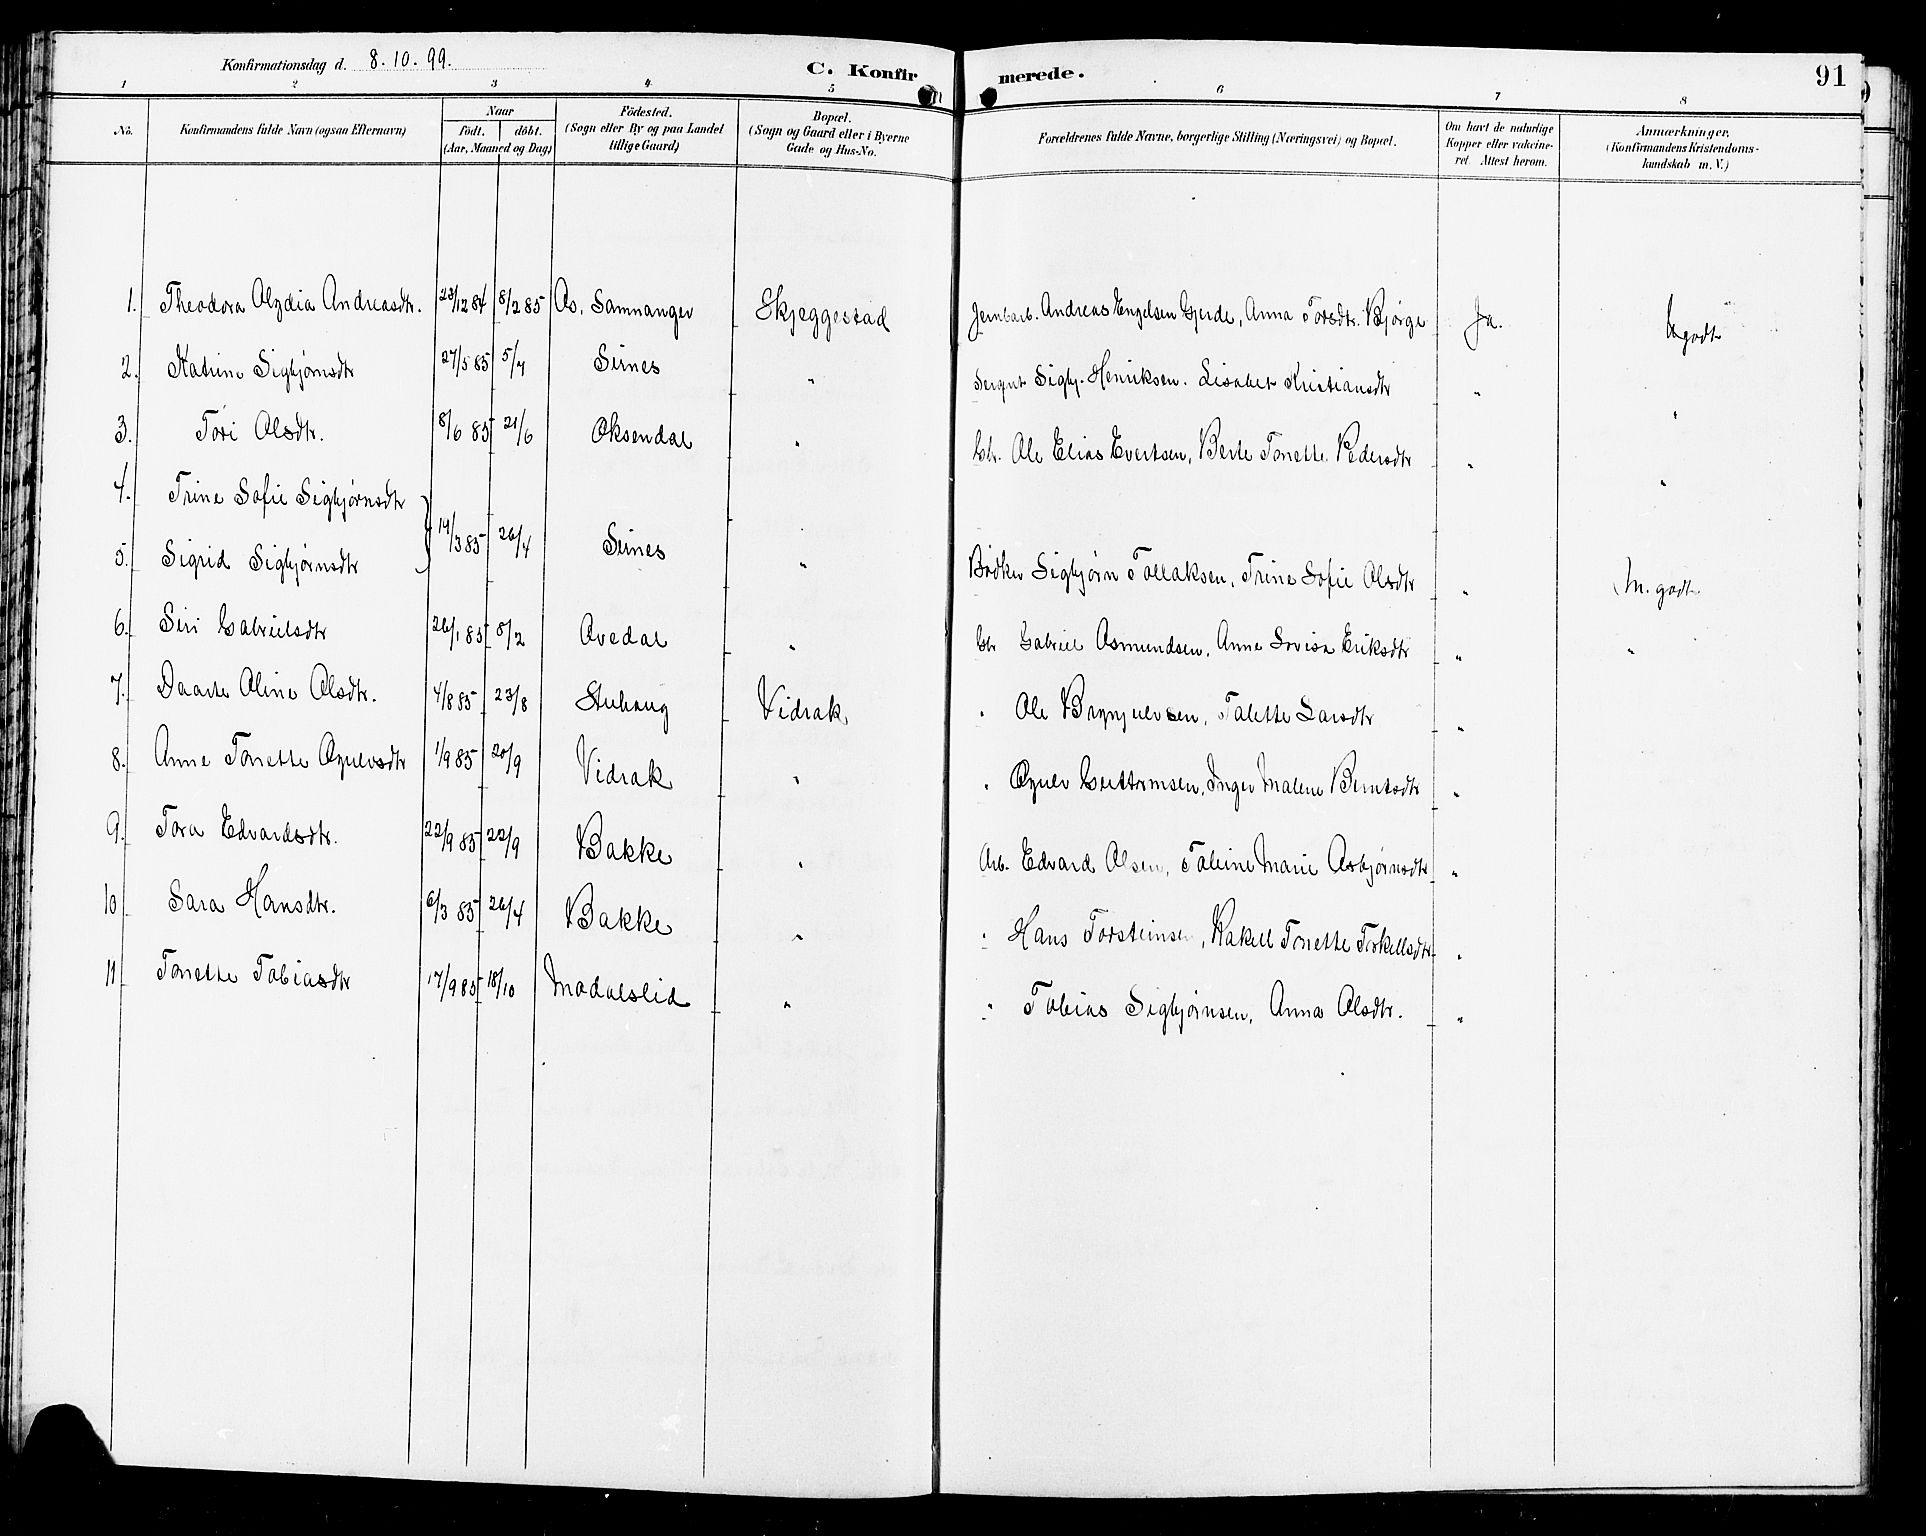 Konfirmationsdag d. 8.10.99.
C. Konfirmerede.
91
1 2 3 4 5 6 7 8
No.
Konfirmandens fulde Navn (ogsaa Efternavn)
Naar
födt. döbt.
(Aar, Maaned og Dag)
Födested.
(Sogn eller By og paa Landet
tillige Gaard)
Bopæl.
(Sogn og Gaard eller i Byerne
Gade og Hus-No.
Forældrenes fulde Navne, borgerlige Stilling (Næringsvei) og Bopæl.
Om havt de naturlige
Kopper eller vakcine-
ret. Attest herom.
Anmærkninger.
(Konfirmandens Kristendoms-
kundskab m. V.)
1. Theodora Alydia Andreasdtr. 23/12 84 8/2 85 Os, Samnanger Skjeggestad Jernbarb. Andreas Engelsen Gjerde, Anna Torsdtr. Bjørge Ja. godt
2. Katrine Sigbjørnsdtr 27/5 85 5/7 Sirnes " Sergnt Sigbj. Henriksen. Lisabet Kristiansdtr " "
3. Tori Olsdtr. 8/6 85 21/6 Oksendal " Gbr. Ole Elias Evertsen, Berte Tonette Pedersdtr " "
4. Trine Sofie Sigbjørnsdtr
5. Sigrid Sigbjørnsdtr } 14/3 85 26/4 Sirnes " Bødker Sigbjørn Tollaksen, Trine Sofie Olsdtr " M. godt
6. Siri Gabrielsdtr 26/1 85 8/2 Avedal " Gbr Gabriel Osmundsen, Anne Lovisa Eriksdtr " "
7. Daarte Oline Olsdtr. 4/8 85 23/8 Stuhaug Vidrak " Ole Brynjulvsen, Talette Larsdtr "
8. Anne Tonette Ogulvsdtr 1/9 85 20/9 Vidrak " " Ogulv Guttormsen, Inger Malene Berntsdtr "
9. Tora Edvardsdtr. 22/9 85 22/9 Bakke " Arb. Edvard Olsen, Taline Marie Asbjørnsdtr "
10 Sara Hansdtr. 6/3 85 26/4 Bakke " " Hans Torsteinsen, Rakel Tonette Torkellsdtr "
11 Tonette Tobiasdtr 17/9 85 18/10 Modalslid " " Tobias Sigbjørnsen, Anna Olsdtr. "